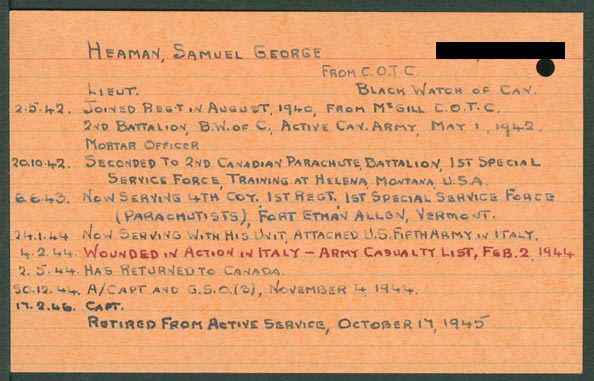 HEAMAN, SAMUEL GEORGE
FROM C.O.T.C.
LIEUT. BLACK WATCH OF CAN.
2.5.42. JOINED REGT IN AUGUST, 1940, FROM McGILL C.O.T.C.
2ND BATTALION, B.W. OF C., ACTIVE CAN. ARMY, MAY 1, 1942.
MORTAR OFFICER
20.10.42. SECONDED TO 2ND CANADIAN PARACHUTE BATTALION, 1ST SPECIAL
SERVICE FORCE, TRAINING AT HELENA, MONTANA, U.S.A.
6.6.43. NOW SERVING 4TH COY. 1ST REGT, 1ST SPECIAL SERVICE FORCE
(PARACHUTISTS), FORT ETHAN ALLEN, VERMONT.
24.1.44 NOW SERVING WITH HIS UNIT, ATTACHED U.S. FIFTH ARMY IN ITALY.
4.2.44. WOUNDED IN ACTION IN ITALY – ARMY CASUALTY LIST, FEB. 2, 1944
2.5.44. HAS RETURNED TO CANADA.
30.12.44. A/CAPT AND G.S.O.(3), NOVEMBER 4, 1944.
17.2.46. CAPT.
RETIRED FROM ACTIVE SERVICE, OCTOBER 17, 1945